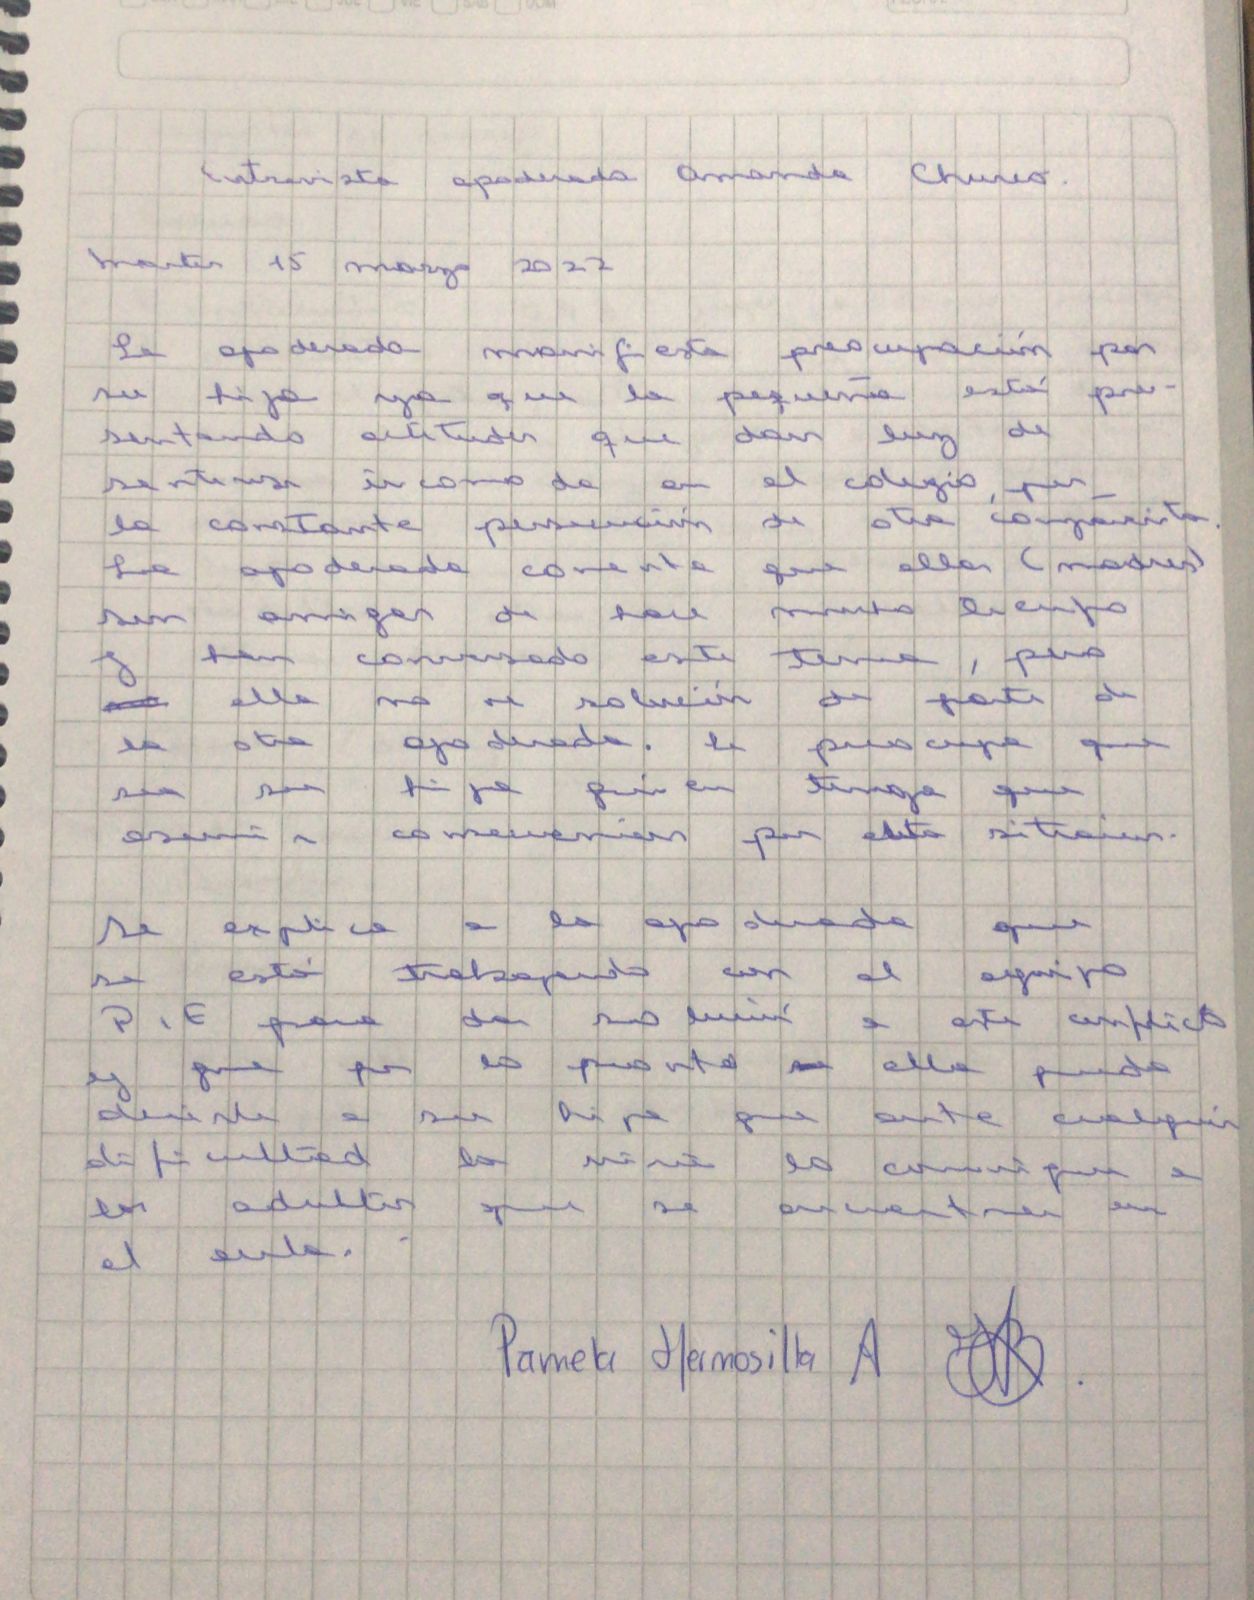 Entrevista apoderada Amanda
Martes 15 marzo 2022
La apoderada manifiesta preocupación por
su hija ya que la pequeña está pre-
sentando actitudes que dan luz de
sentirse incomoda en el colegio, por
la constante persecución de otra compañerita.
La apoderada comenta que ellas (madres)
son amigas de hace mucho tiempo
y han conversado este tema, pero
ella no ve solución de parte de
la otra apoderada. Le preocupa que
sea su hija quien tenga que
asumir consecuencias por esta situación.
Se explica a la apoderada que
se está trabajando con el equipo
P.I.E para dar solución a este conflicto
y que por lo pronto ella puede
decirle a su hija que ante cualquier
dificultad la niña lo comunique a
los adultos que se encuentren en
el aula.
Pamela Hermosilla A